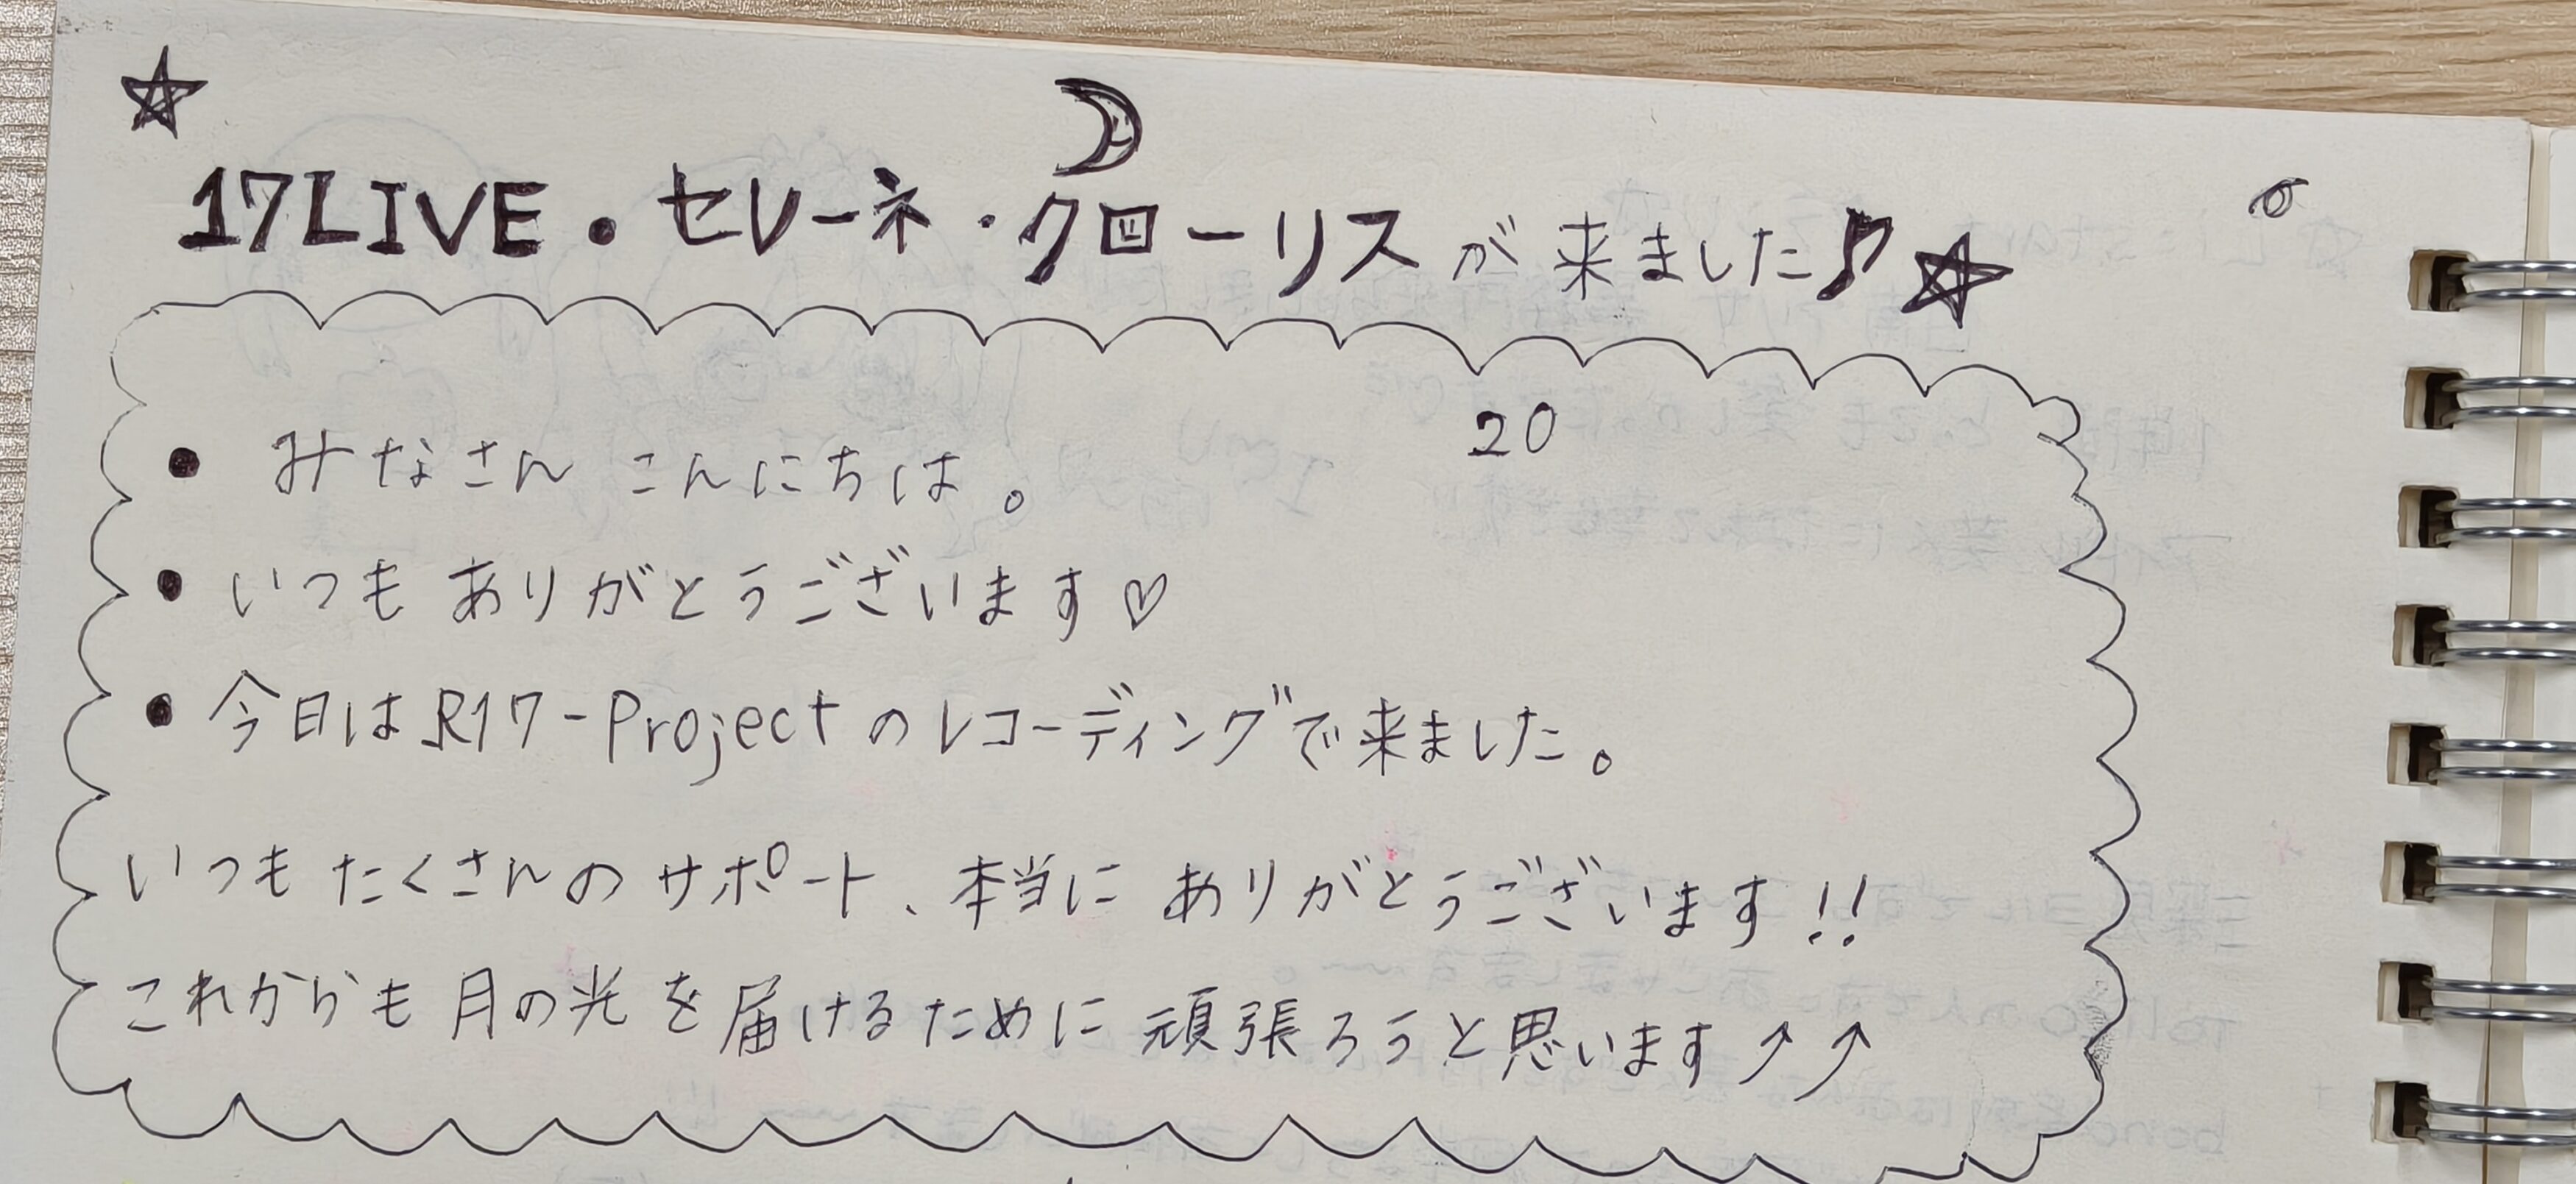 17LIVE・セレーネ・クローリスが来ました♪
20
・みなさん こんにちは。
・いつも ありがとうございます♡
・今日はR17-Projectのレコーディングで来ました。
いつも たくさんの サポート、本当に ありがとうございます!!
これからも 月の光を届けるために頑張ろうと思います↗↗